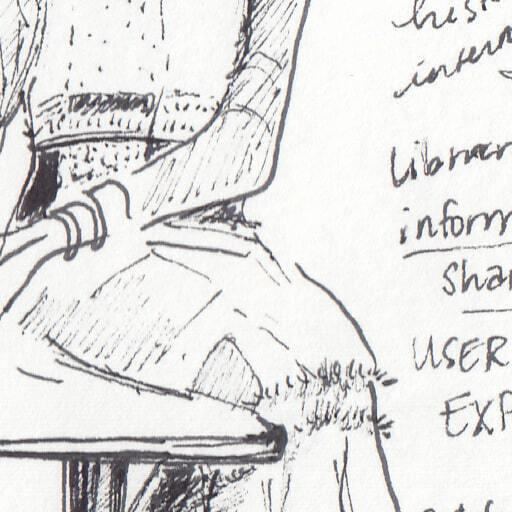 hist
intern
Librar
inform
shar
USER
EXP